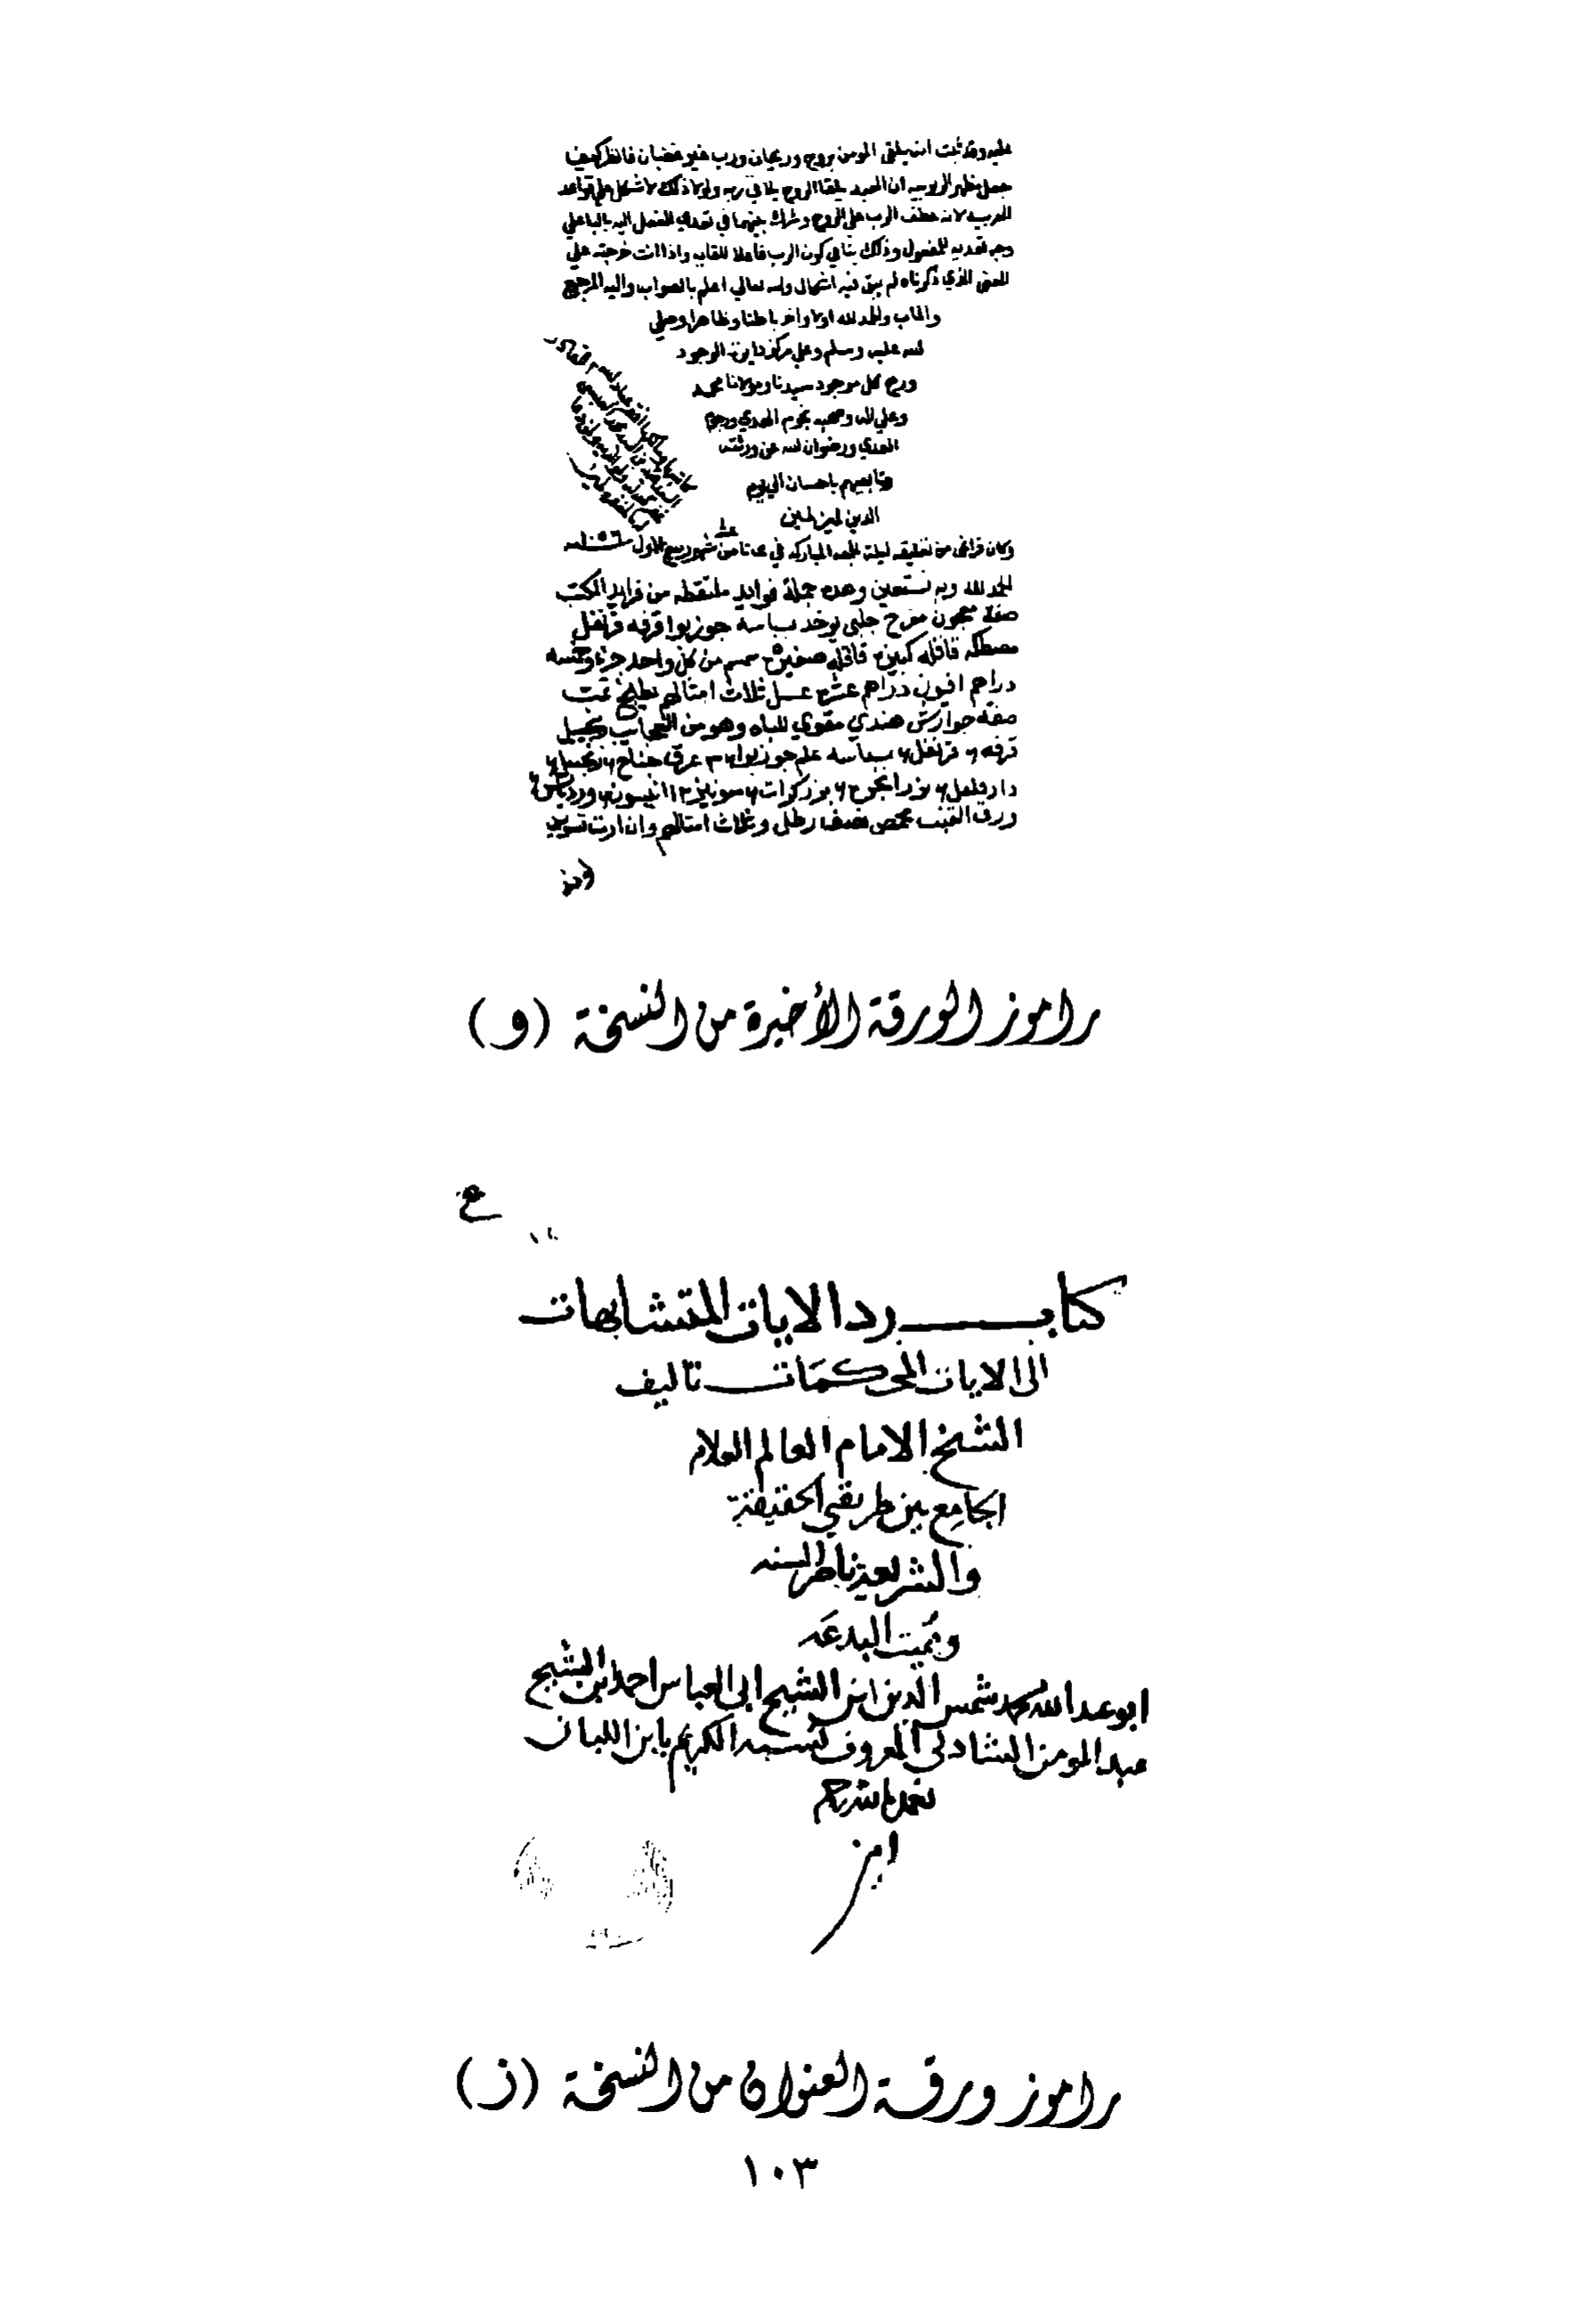 عليه وقد ثبت انه يلقى المومن بروح وريحان ورب غير غضبان فانظر كيف
جعل مظهر الربوبيه ان العبد يلقا الروح يلقا في ربه ولولا ذلك لاشكل على قواعد
العربيه لانه عطف الرب على الروح وشرك بينهما في تعدي الفعل اليه بالباء على
وجه تعديه للمفعول وذلك ينافي كون الرب فاعلا للقايه واذا انت خرجته على
المعنى الذي ذكرناه لم يبق فيه اشكال والله تعالي اعلم بالصواب واليه المرجع
والماب والحمد لله اولا واخر باطنا وظاهرا وصلى
الله عليه وسلم وعلى مركز داية الوجود
وروح كل موجود سيدنا ومولانا محمد
وعلي اله وصحبه نجوم الهدي ورجوم
العدي ورضوان الله عن ورثته
وتابعيهم باحسان الي يوم
الدين امين امين
وكان فراغى من تعليقه ليلة الجمعه المباركه في ثامن شهر ربيع الاول
الحمد لله وبه نستعين وهذه جملة فوايد ملتقطه من فرايد الكتب
صفة معجون مفرح جلبي يوخد بسباسه جوز بوا قرفه قرنفل
مصطكه قاقله كبيره قاقله صغيره سمسم من كل واحد جزء وخمسه
دراهم افيون دراهم عشره عسل ثلاث امثالهم يطبخ تمت
صفة جوارش هندي مقوي للباه وهو من العجايب زنجبيل
قرفه ٤ قرنفل ٤ بسباسه جوز بوا عرق جناح
دار فلفل ٤ بزر ٤ بزر كرات ٤ سونيز ١٢ انيسون
ورق القنب محمص نصف رطل وثلاث امثالهم وان اردت تسويد
راموز الورقة الأخيرة من النسخة (و)
كتاب رد الايات المتشابهات
الى الايات المحكمات تاليف
الشيخ الامام العالم العلامه
الجامع بين طريقي الحقيقة
والشريعة ناصر السنه
ومميت البدعه
ابو عبد الله محمد شمس الدين ابن الشيخ ابي العباس احمد ابن الشيخ
عبد المومن الشاذلي المعروف نسبه الكريم بابن اللبان
تغمده الله برحمته
امين
راموز ورقة العنوان من النسخة (ز)
١٠٣